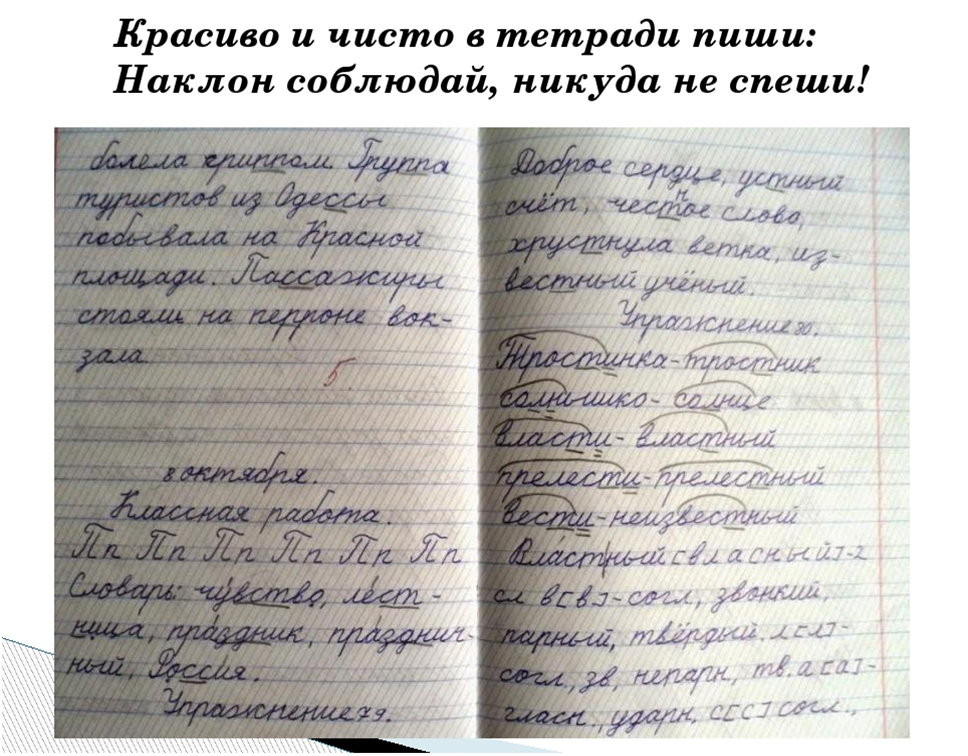 Красиво и чисто в тетради пиши:
Наклон соблюдай, никуда не спеши!
болела гриппом. Группа
туристов из Одессы
побывала на Красной
площади. Пассажиры
стояли на перроне вок-
зала.
5.
8 октября.
Классная работа.
Пп Пп Пп Пп Пп Пп
Словарь: чу́вство, ле́ст-
ница, пра́здник, пра́зднич-
ный, Россия.
Упражнение 79.
Доброе сердце, устный
счёт, честное слово,
хрустнула ветка, из-
вестный учёный.
Упражнение 80.
Тростинка - тростник
солнышко - солнце
власти - властный
прелести - прелестный
вести - неизвестный
Вла́ст|ный [в л а с н ы й] - 2
сл в [в] - согл, звонкий,
парный, твёрдый. л [л] -
согл., зв, непарн, тв. а [а] -
гласн., ударн. с [с] согл.,